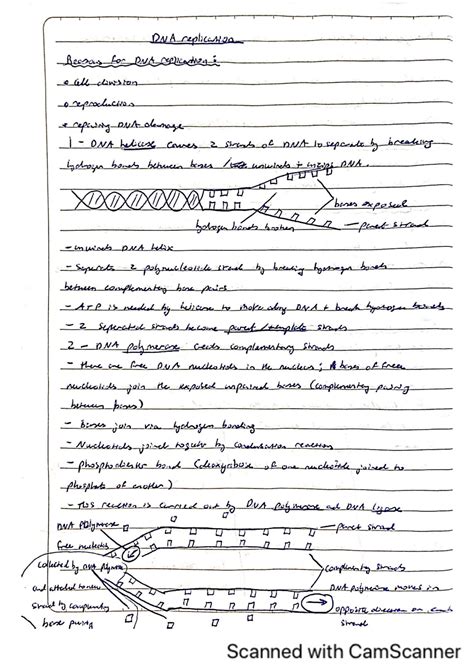 DNA replication
Reasons for DNA replication:
• Cell division
• reproduction
• repairing DNA damage
1 - DNA helicase causes 2 strands of DNA to separate by breaking
hydrogen bonds between bases / unwinds + DNA.
bases exposed
hydrogen bonds broken
- parent strand
- unwinds DNA helix
- Separate 2 polynucleotide strand by breaking hydrogen bonds
between complementary base pairs
- ATP is needed by helicase to move along DNA + break hydrogen bonds
- 2 separated strands become parent/template strands
2 - DNA polymerase creates complementary strands
- there are free DNA nucleotides in the nucleus; bases of free
nucleotides join the exposed unpaired bases (complementary pairing
between bases)
- Bases join via hydrogen bonding
- Nucleotides joined together by condensation reaction
- phosphodiester bond (deoxyribose of one nucleotide joined to
phosphate of another)
- This reaction is carried out by DNA polymerase and DNA ligase
DNA Polymerase
- parent strand
free nucleotides
collected by DNA polymerase
complementary strands
and attached to new
DNA polymerase moves in
strand by complementary
opposite direction on each
base pairing
strand
Scanned with CamScanner